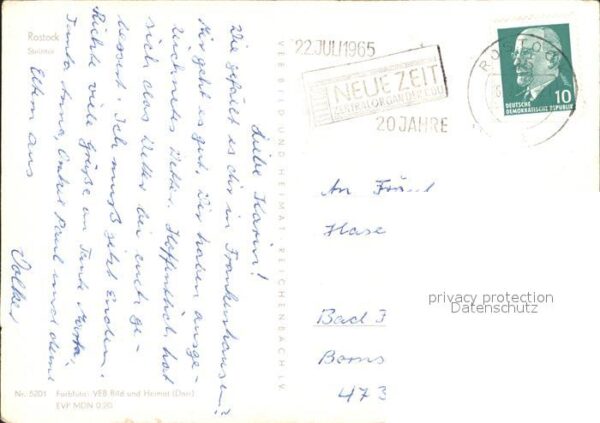 Rostock
Steintor
Liebe Karin!
Wie gefällt es dir in Frankenhausen?
Mir geht es gut. Wir haben ausge-
zeichnetes Wetter. Hoffentlich hat
sich das Wetter bei euch ge-
bessert. Ich muß jetzt Enden.
Richte viele Grüße an Tante Marta,
Tante Anna, Onkel Paul und deine
Eltern aus
Volker
Nr. 5201 Farbfoto: VEB Bild und Heimat (Darr)
EVP MDN 0.20
VEB BILD UND HEIMAT REICHENBACH I.V.
22 JULI 1965
NEUE ZEIT
ZENTRALORGAN DER CDU
20 JAHRE
ROSTOCK
DEUTSCHE
DEMOKRATISCHE REPUBLIK
10
An
Hase
Bad F
Borns
473
privacy protection
Datenschutz